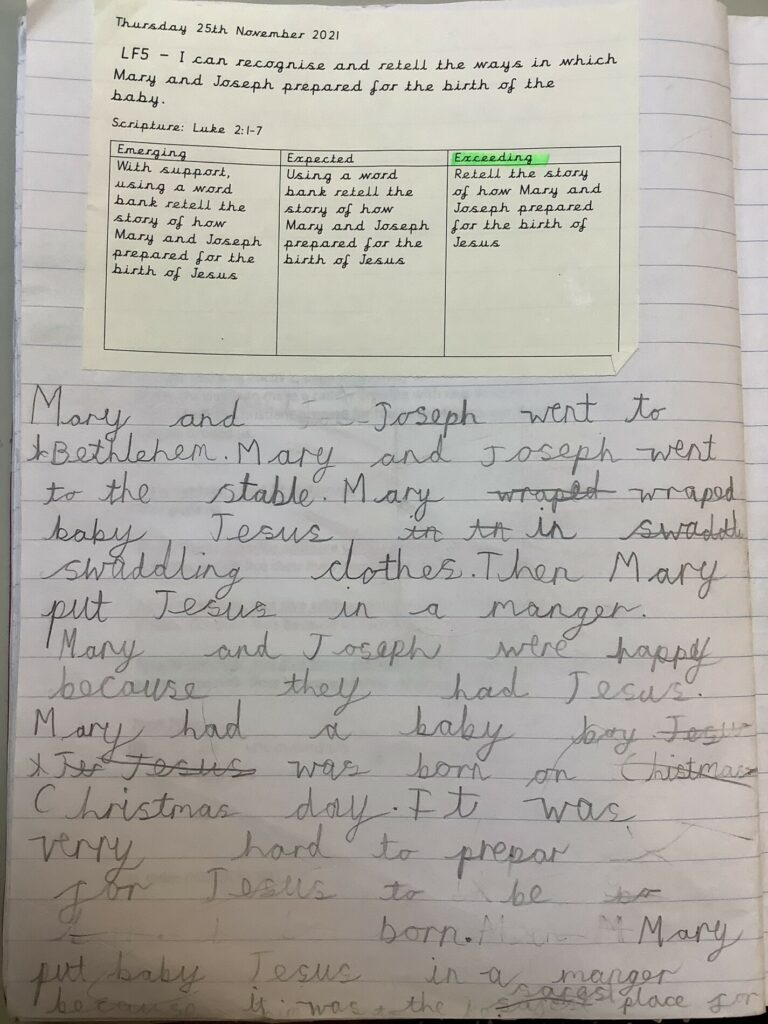 Thursday 25th November 2021
LF5 - I can recognise and retell the ways in which
Mary and Joseph prepared for the birth of the
baby.
Scripture: Luke 2:1-7
Emerging
With support,
using a word
bank retell the
story of how
Mary and Joseph
prepared for the
birth of Jesus
Expected
Using a word
bank retell the
story of how
Mary and Joseph
prepared for the
birth of Jesus
Exceeding
Retell the story
of how Mary and
Joseph prepared
for the birth of
Jesus
Mary and Joseph went to
*Bethlehem. Mary and Joseph went
to the stable. Mary wraped wraped
baby Jesus in in in swaddl
swaddling clothes. Then Mary
put Jesus in a manger.
Mary and Joseph were happy
because they had Jesus.
Mary had a baby boy Jesus
*Jes Jesus was born on Chistmas
Christmas day. It was
verry hard to prepar
for Jesus to be
born. Mary
put baby Jesus in a manger
because it was the safest place for